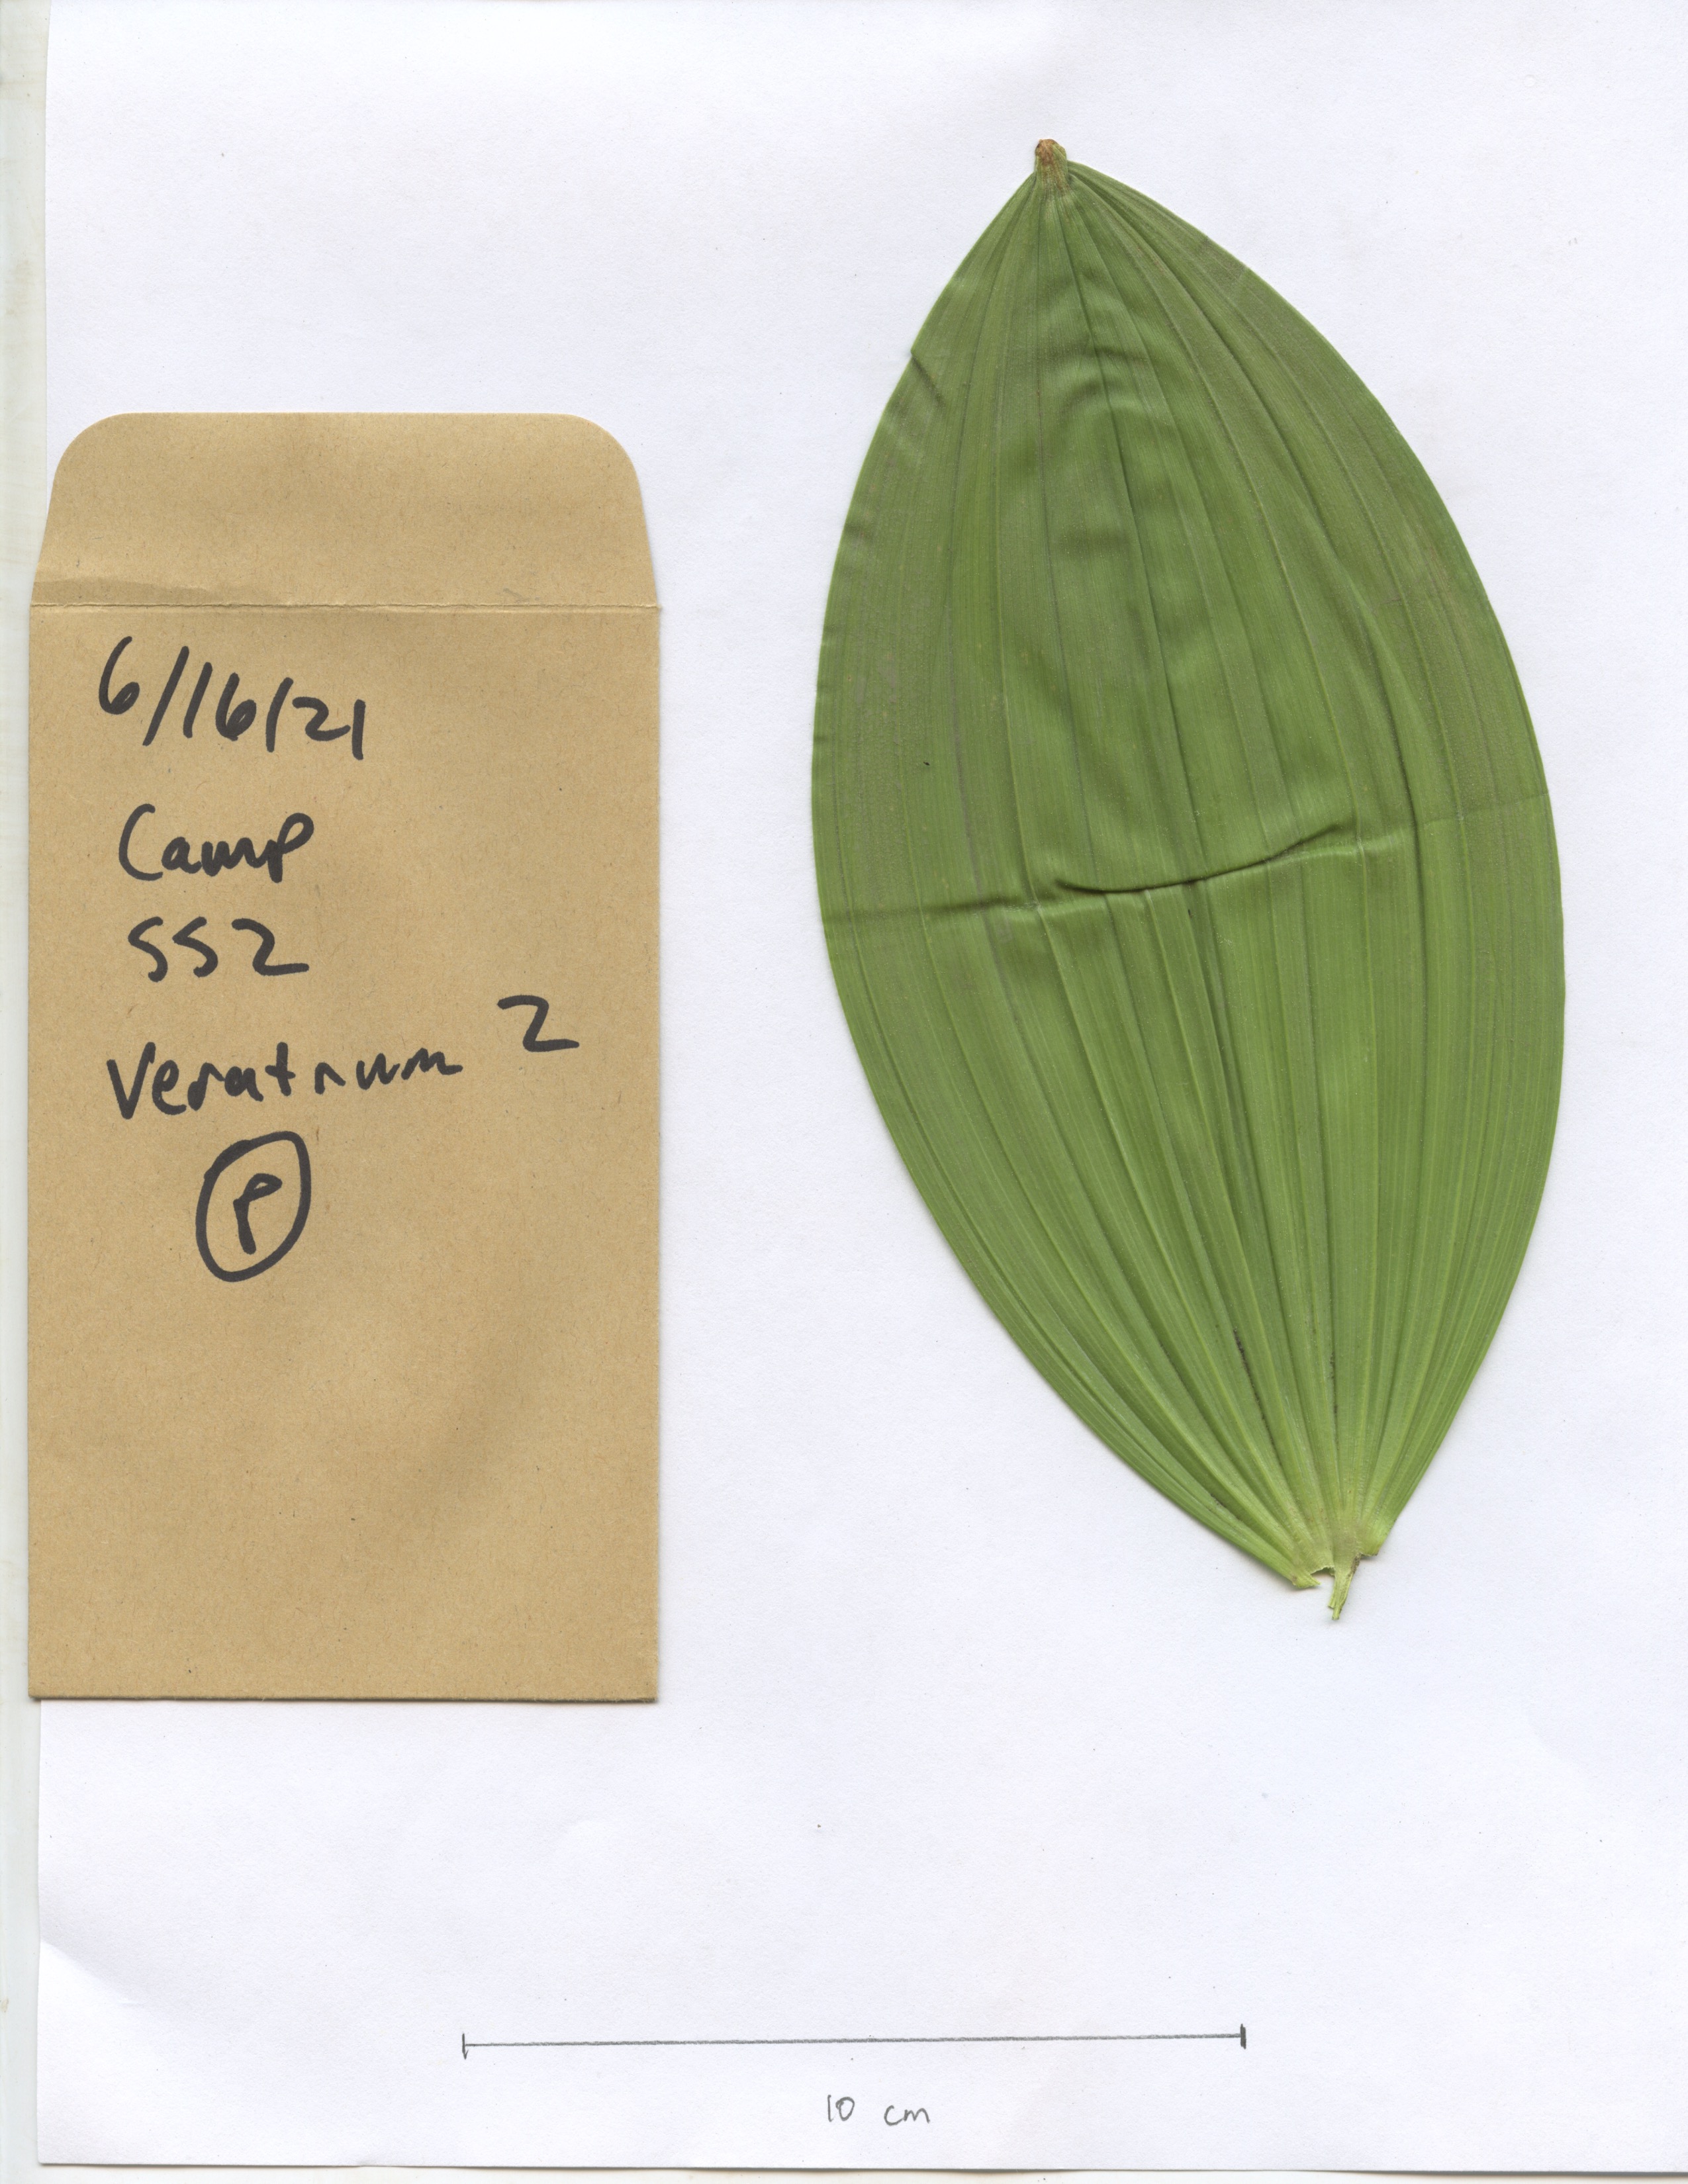 6/16/21
Camp
SS2
Veratrum 2
P
10 cm